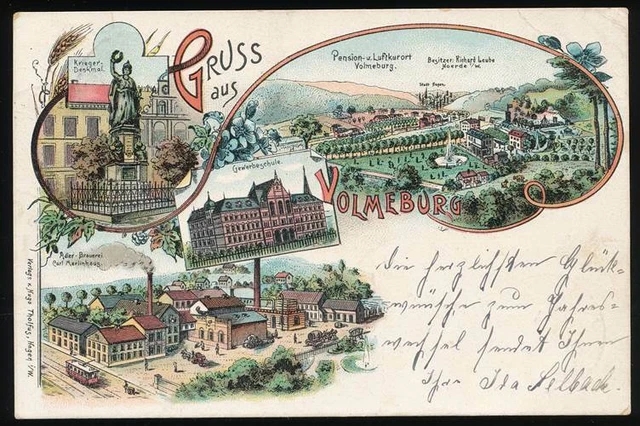 Krieger-
Denkmal.
GRUSS
aus
Pension- u. Luftkurort
Volmeburg.
Besitzer: Richard Leube
Hoerde i/W.
Stadt Hagen.
Gewerbeschule.
VOLMEBURG
Adler-Brauerei
Carl Marlinhaus.
Verlag v. Hugo Thalfug, Hagen i/W.
Die herzlichsten Glück-
wünsche zum Jahres-
wechsel sendet Ihnen
Ihre Ida Selbach.